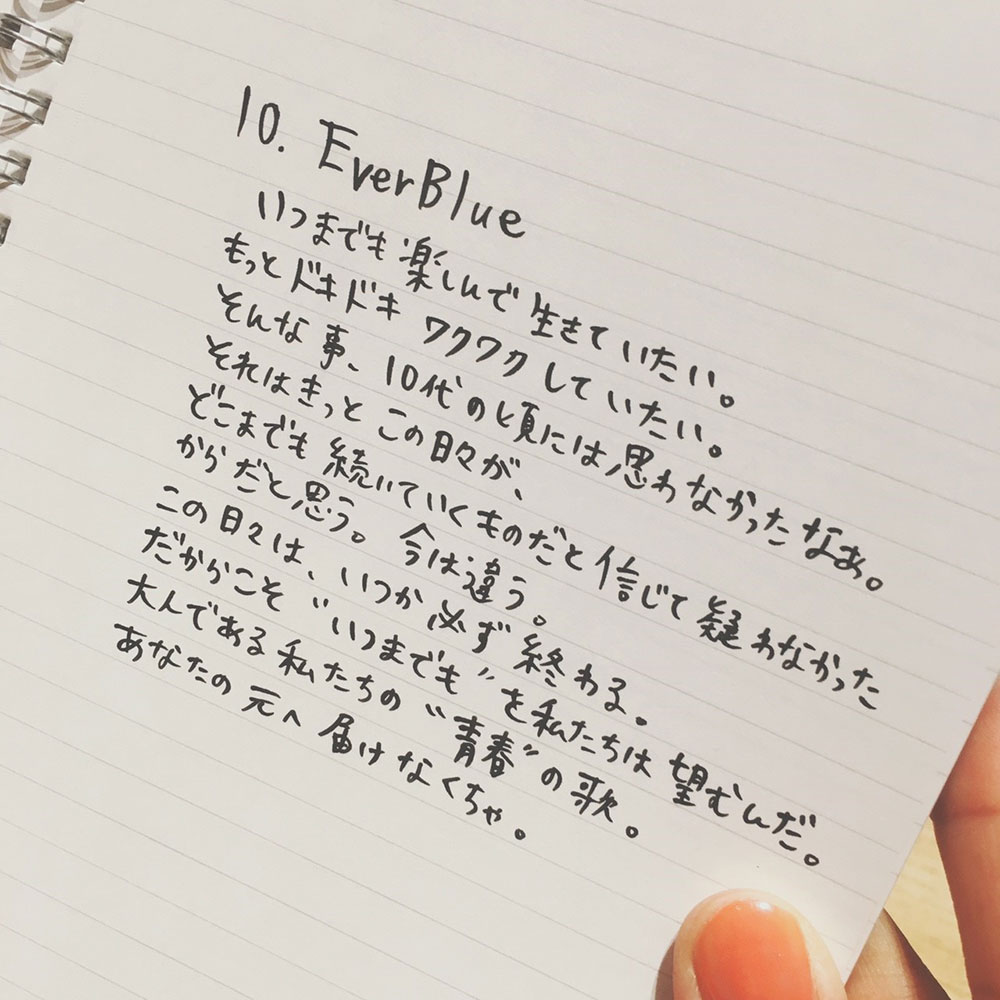 10. EverBlue
いつまでも楽しんで生きていたい。
もっとドキドキ ワクワクしていたい。
そんな事、10代の頃には思わなかったなぁ。
それはきっとこの日々が、
どこまでも続いていくものだと信じて疑わなかった
からだと思う。今は違う。
この日々は、いつか必ず終わる。
だからこそ“いつまでも”を私たちは望むんだ。
大人である私たちの“青春”の歌。
あなたの元へ届けなくちゃ。